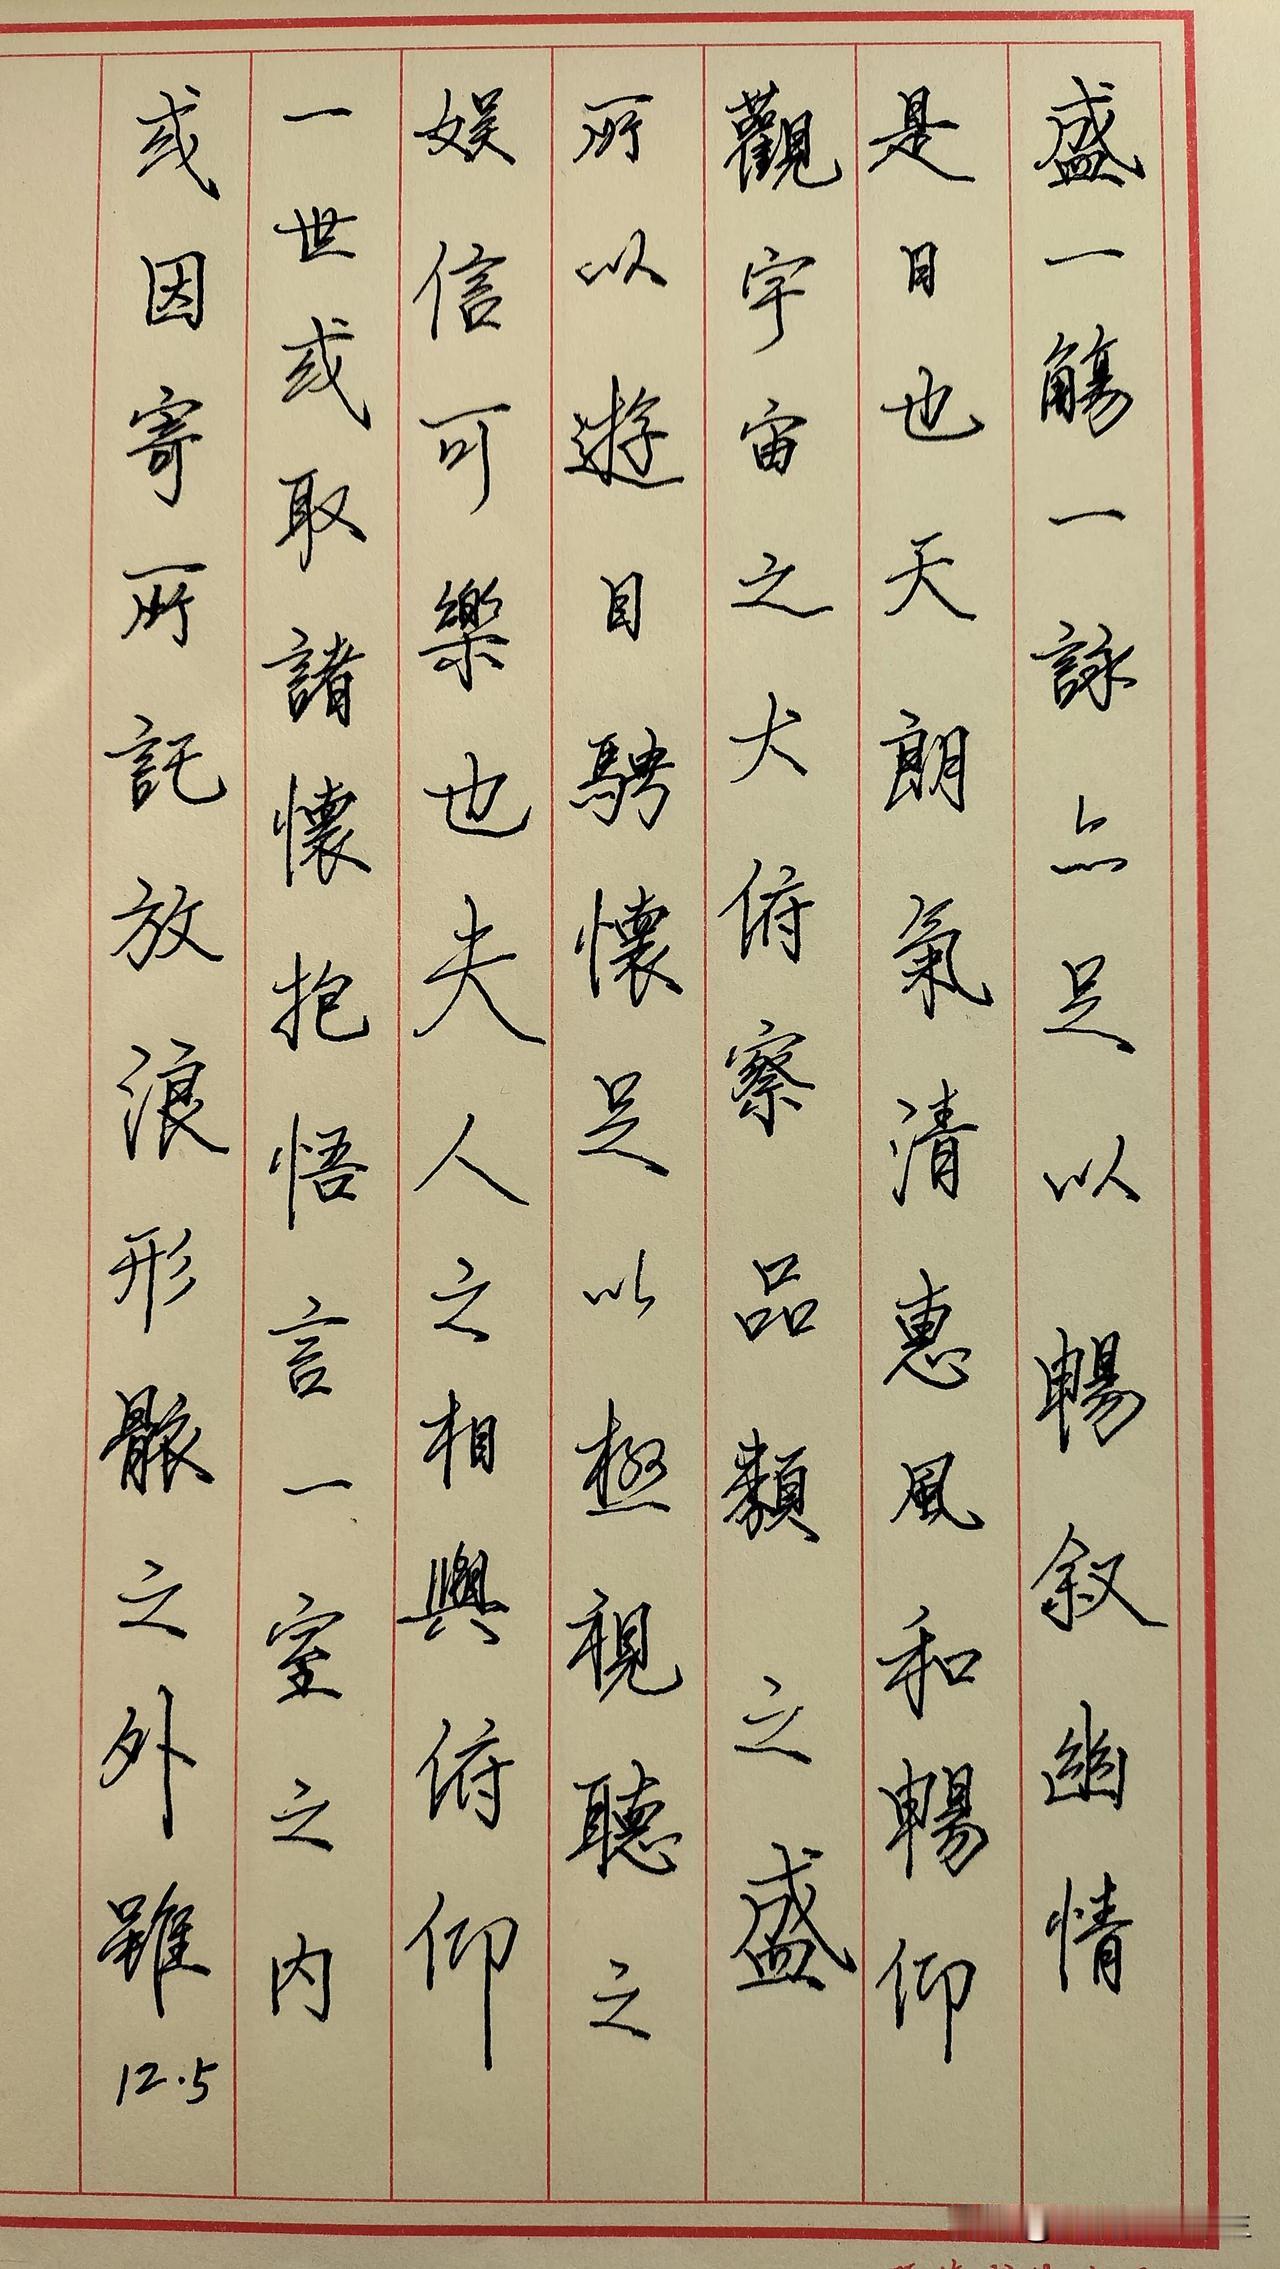 盛一觴一詠亦足以暢叙幽情
是日也天朗氣清惠風和暢仰
觀宇宙之大俯察品類之盛
所以遊目騁懷足以極視聽之
娱信可樂也夫人之相與俯仰
一世或取諸懷抱悟言一室之内
或因寄所託放浪形骸之外雖
12.5